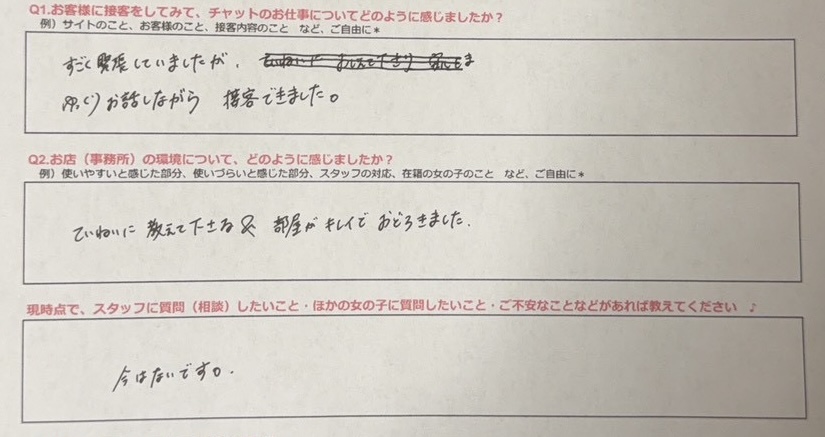 Q1.お客様に接客をしてみて、チャットのお仕事についてどのように感じましたか？
例）サイトのこと、お客様のこと、接客内容のこと　など、ご自由に＊
すごく緊張していましたが、
ゆっくりお話しながら　接客できました。
Q2.お店（事務所）の環境について、どのように感じましたか？
例）使いやすいと感じた部分、使いづらいと感じた部分、スタッフの対応、在籍の女の子のこと　など、ご自由に＊
ていねいに 教えて下さる & 部屋がキレイで おどろきました.
現時点で、スタッフに質問（相談）したいこと・ほかの女の子に質問したいこと・ご不安なことなどがあれば教えてください　♪
今はないです。